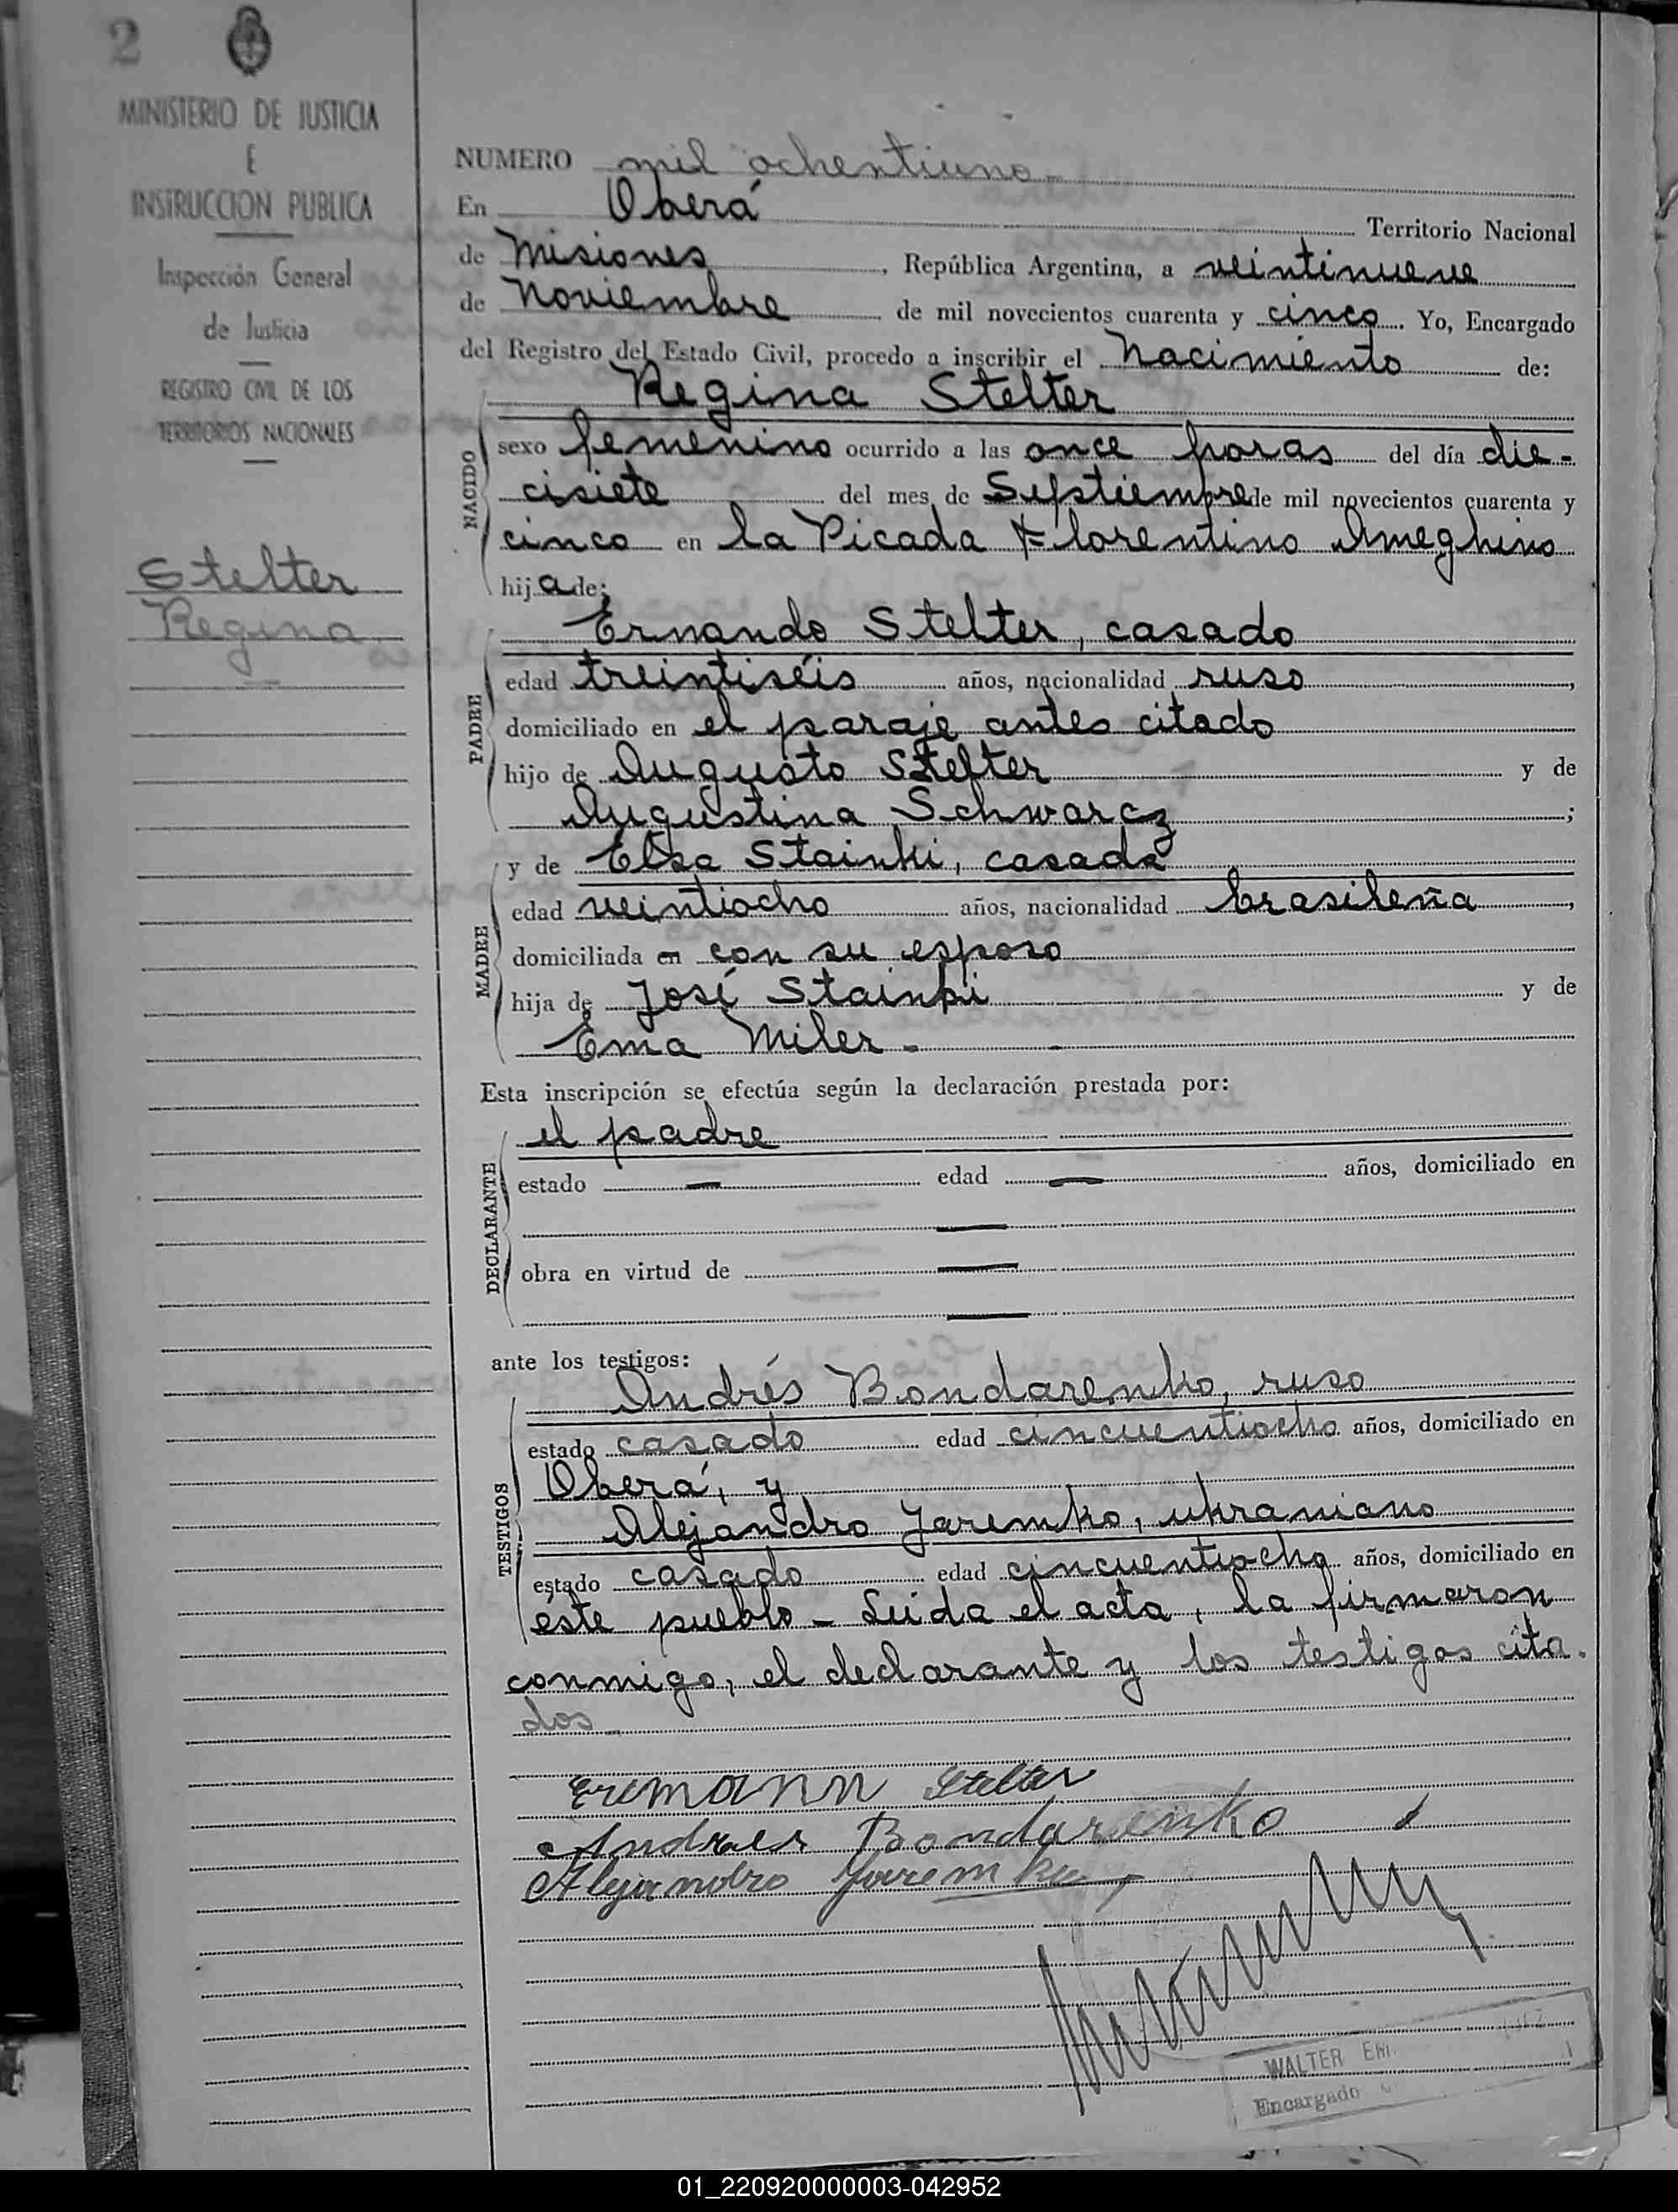 2
MINISTERIO DE JUSTICIA
E
INSTRUCCION PUBLICA
Inspección General
de Justicia
REGISTRO CIVIL DE LOS
TERRITORIOS NACIONALES
Stelter
Regina
NUMERO mil ochentiuno
En Oberá Territorio Nacional
de Misiones, República Argentina, a veintinueve
de Noviembre de mil novecientos cuarenta y cinco. Yo, Encargado
del Registro del Estado Civil, procedo a inscribir el Nacimiento de:
Regina Stelter
NACIDO
sexo femenino ocurrido a las once horas del día die-
cisiete del mes de Septiembre de mil novecientos cuarenta y
cinco en la Picada Florentino Ameghino
hija de:
PADRE
Ernando Stelter, casado
edad treintiséis años, nacionalidad ruso,
domiciliado en el paraje antes citado
hijo de Augusto Stelter y de
Augustina Schwarcz;
MADRE
y de Elsa Stainki, casada
edad veintiocho años, nacionalidad brasileña,
domiciliada en con su esposo
hija de José Stainki y de
Ema Miler -
Esta inscripción se efectúa según la declaración prestada por:
DECLARANTE
el padre
estado — edad — años, domiciliado en
—
obra en virtud de —
—
ante los testigos:
TESTIGOS
Andrés Bondarenko, ruso
estado casado edad cincuentiocho años, domiciliado en
Oberá, y
Alejandro Jaremko, ukraniano
estado casado edad cincuentiocho años, domiciliado en
éste pueblo - Leida el acta, la firmaron
conmigo, el declarante y los testigos cita-
dos -
Eremann Stelter
Andres Bondarenko
Alejandro Jaremko
WALTER
Encargado
01_220920000003-042952